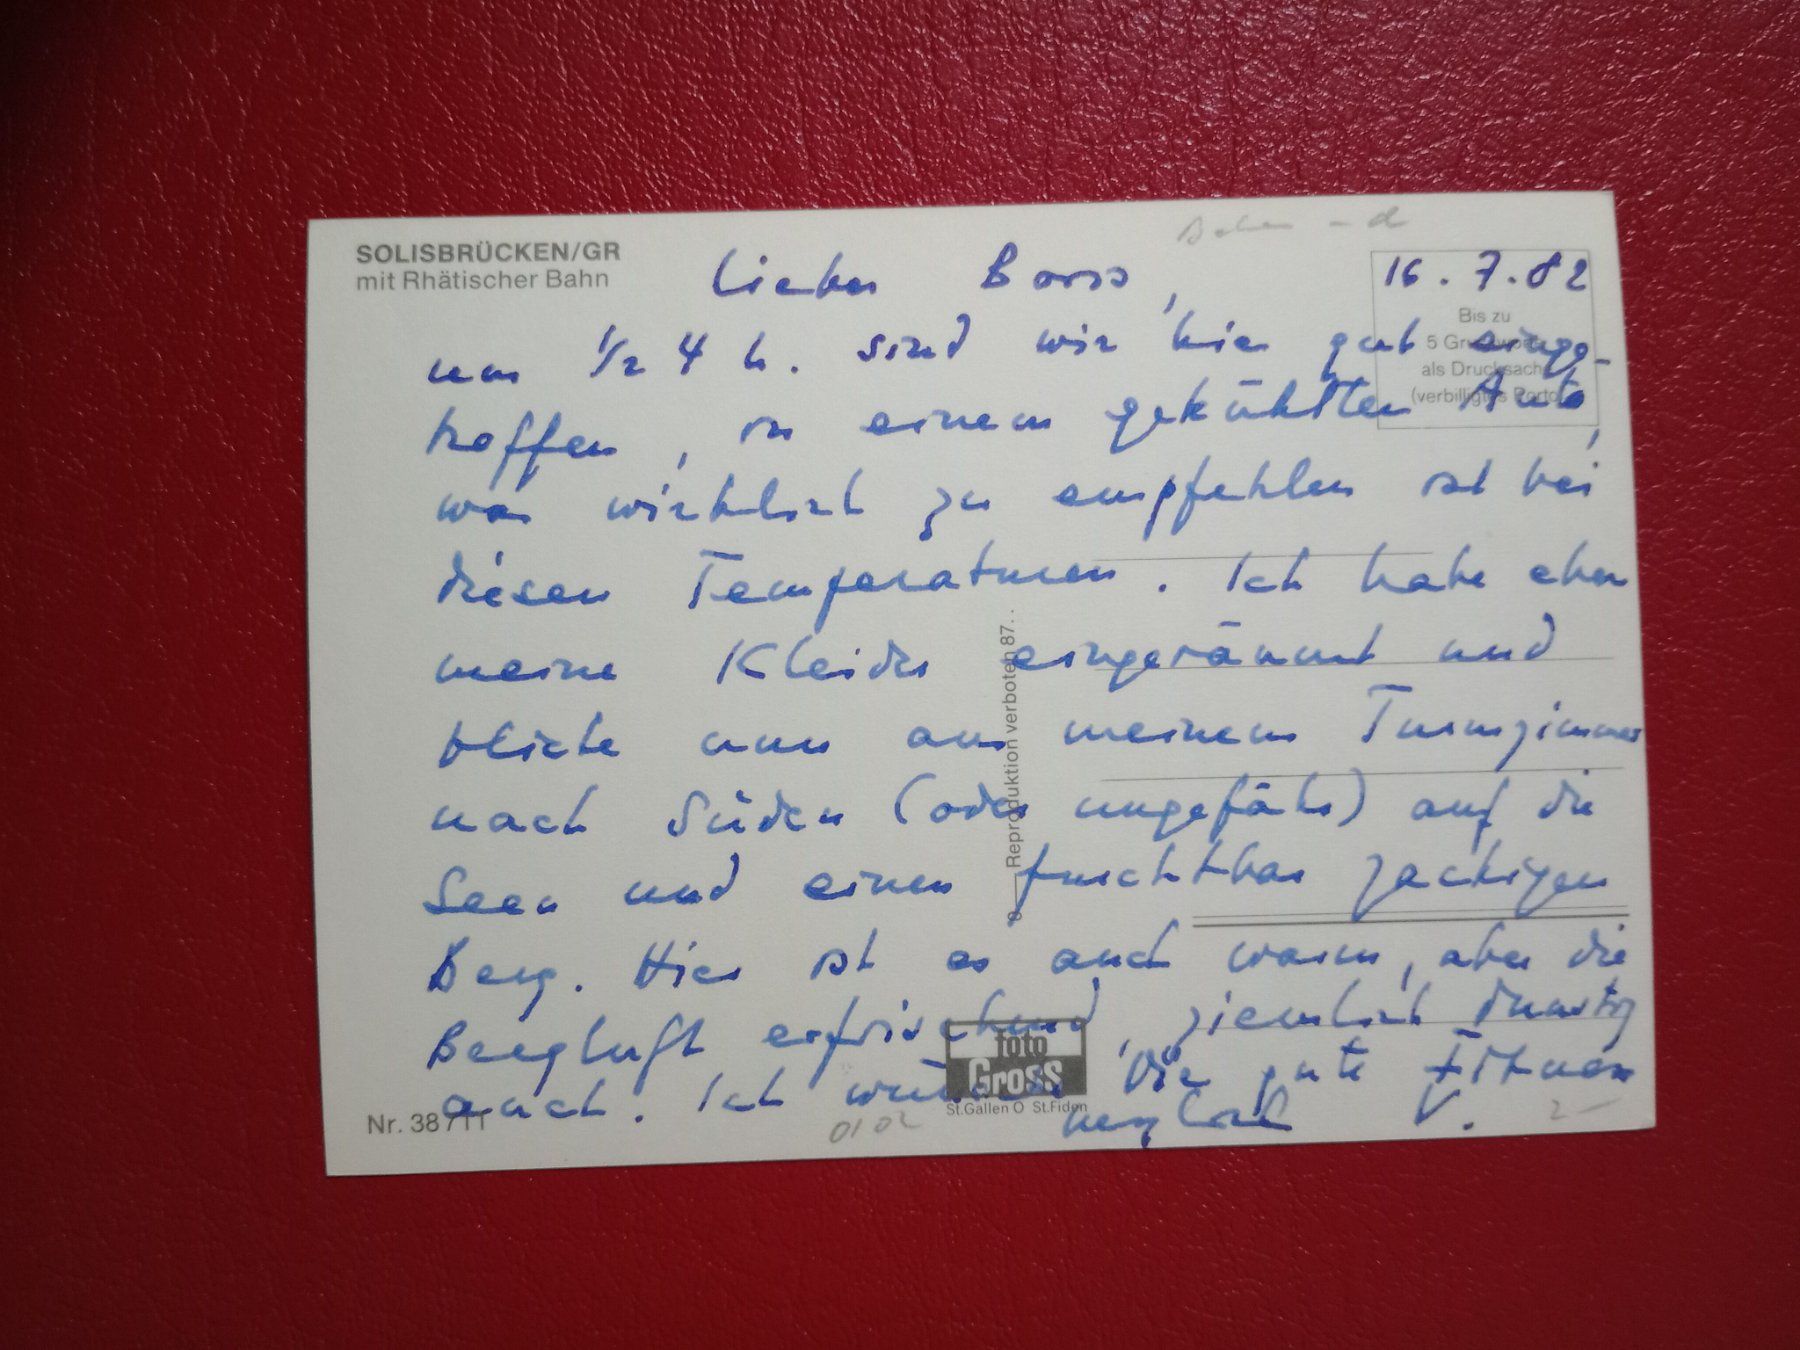 SOLISBRÜCKEN/GR
mit Rhätischer Bahn
Lieber Boris, 16.7.82
Bis zu
5 Grussworte
als Drucksache
(verbilligtes Porto)
um 1/2 4 h. sind wir hier gut einge-
troffen, in einem gekühlten Auto,
was wirklich zu empfehlen ist bei
diesen Temperaturen. Ich habe eben
meine Kleider eingeräumt und
blicke nun aus meinem Turmzimmer
nach Süden (oder ungefähr) auf die
Seen und einen furchtbar zackigen
Berg. Hier ist es auch warm, aber die
Bergluft erfrischend, ziemlich dunstig
auch. Ich wünsche Dir gute
herzlich V.
Reproduktion verboten 87..
foto
Gross
St.Gallen O St.Fiden
Nr. 38711
0102
2-